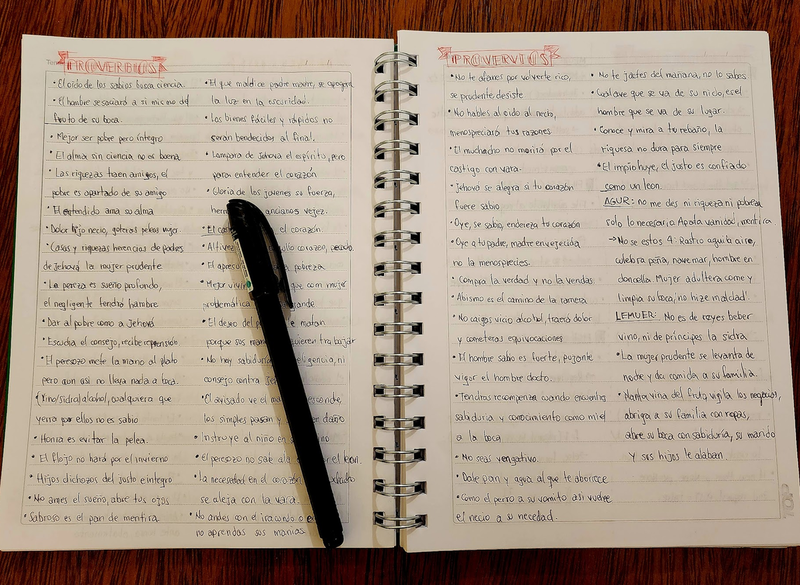 PROVERBIOS
• El oido de los sabios busca ciencia.
• El hombre se saciará a si mismo del
fruto de su boca.
• Mejor ser pobre pero integro
• El alma sin ciencia no es buena
• Las riquezas traen amigos, el
pobre es apartado de su amigo
• El entendido ama su alma
• Dolor hijo necio, goteras pelea mujer.
• Casas y riquezas herencias de padres
de Jehová la mujer prudente
• La pereza es sueño profundo,
el negligente tendrá hambre
• Dar al pobre como a Jehová
• Escucha el consejo, recibe reprensión
• El peresozo mete la mano al plato
pero aun asi no lleva nada a boca.
(Vino/sidra/alcohol, cualquiera que
yerra por ellos no es sabio
• Honra es evitar la pelea.
• El flojo no hará por el invierno
• Hijos dichozos del justo e integro
• No ames el sueño, abre tus ojos
• Sabroso es el pan de mentira.
• El que maldice padre madre, se apagara
la luz en la oscuridad.
• Los bienes fáciles y rápidos no
serán bendecidos al final.
• Lampara de Jehova el espiritu, pero
para entender el corazón
• Gloria de los jovenes su fuerza,
ancianos vejez.
• El el corazon.
• corazón, pecado
• El pobreza
• Mejor con mujer
problemática
• El deseo del matan
porque sus trabajar
• No hay ni
consejo contra
• El avisado ve el mal esconde,
los simples pasan daño
• Instruye al niño en
• El peresozo no sale
• La necedad en el
se aleja con la vara.
• No andes con el iracundo o
no aprendas sus manias.
PROVERVIOS
• No te afanes por volverte rico,
se prudente desiste
• No hables al oido al necio,
menospreciará tus razones
• El muchacho no morirá por el
castigo con vara.
• Jehova se alegra si tu corazón
fuere sabio
• Oye, se sabio, endereza tu corazón
• Oye a tu padre, madre envejecida
no la menosprecies.
• Compra la verdad y no la vendas
• Abismo es el camino de la ramera
• No caigas vicio alcohol, traerá dolor
y cometeras equivocaciones
• El hombre sabio es fuerte, pujante
vigor el hombre docto.
• Tendras recompenza cuando encuentra
sabiduria y conocimiento como miel
a la boca
• No seas vengativo.
• Dale pan y agua al que te aborrece
• Como el perro a su vomito asi vuelve
el necio a su necedad.
• No te jactes del mañana, no lo sabes
• Cual ave que se va de su nicio, es el
hombre que se va de su lugar.
• Conoce y mira a tu rebaño, la
riquesa no dura para siempre
• El impio huye, el justo es confiado
como un leon.
AGUR: no me des ni riqueza ni pobreza
solo lo necesario. Aparta vanidad, mentira
→ No se estos 4: Rastro aguila aire,
culebra peña, nave mar, hombre en
doncella. Mujer adultera come y
limpia su boca, no hize maldad.
LEMUER: No es de reyes beber
vino, ni de principes la sidra
• La mujer prudente se levanta de
noche y da comida a su familia.
• Planta viña del fruto, vigila los negocios,
abriga a su familia con ropas,
abre su boca con sabiduria, su marido
Y sus hijos le alaban.